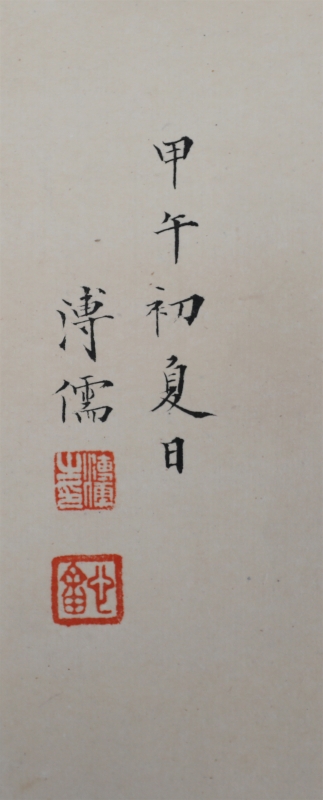 甲午初夏日
溥儒